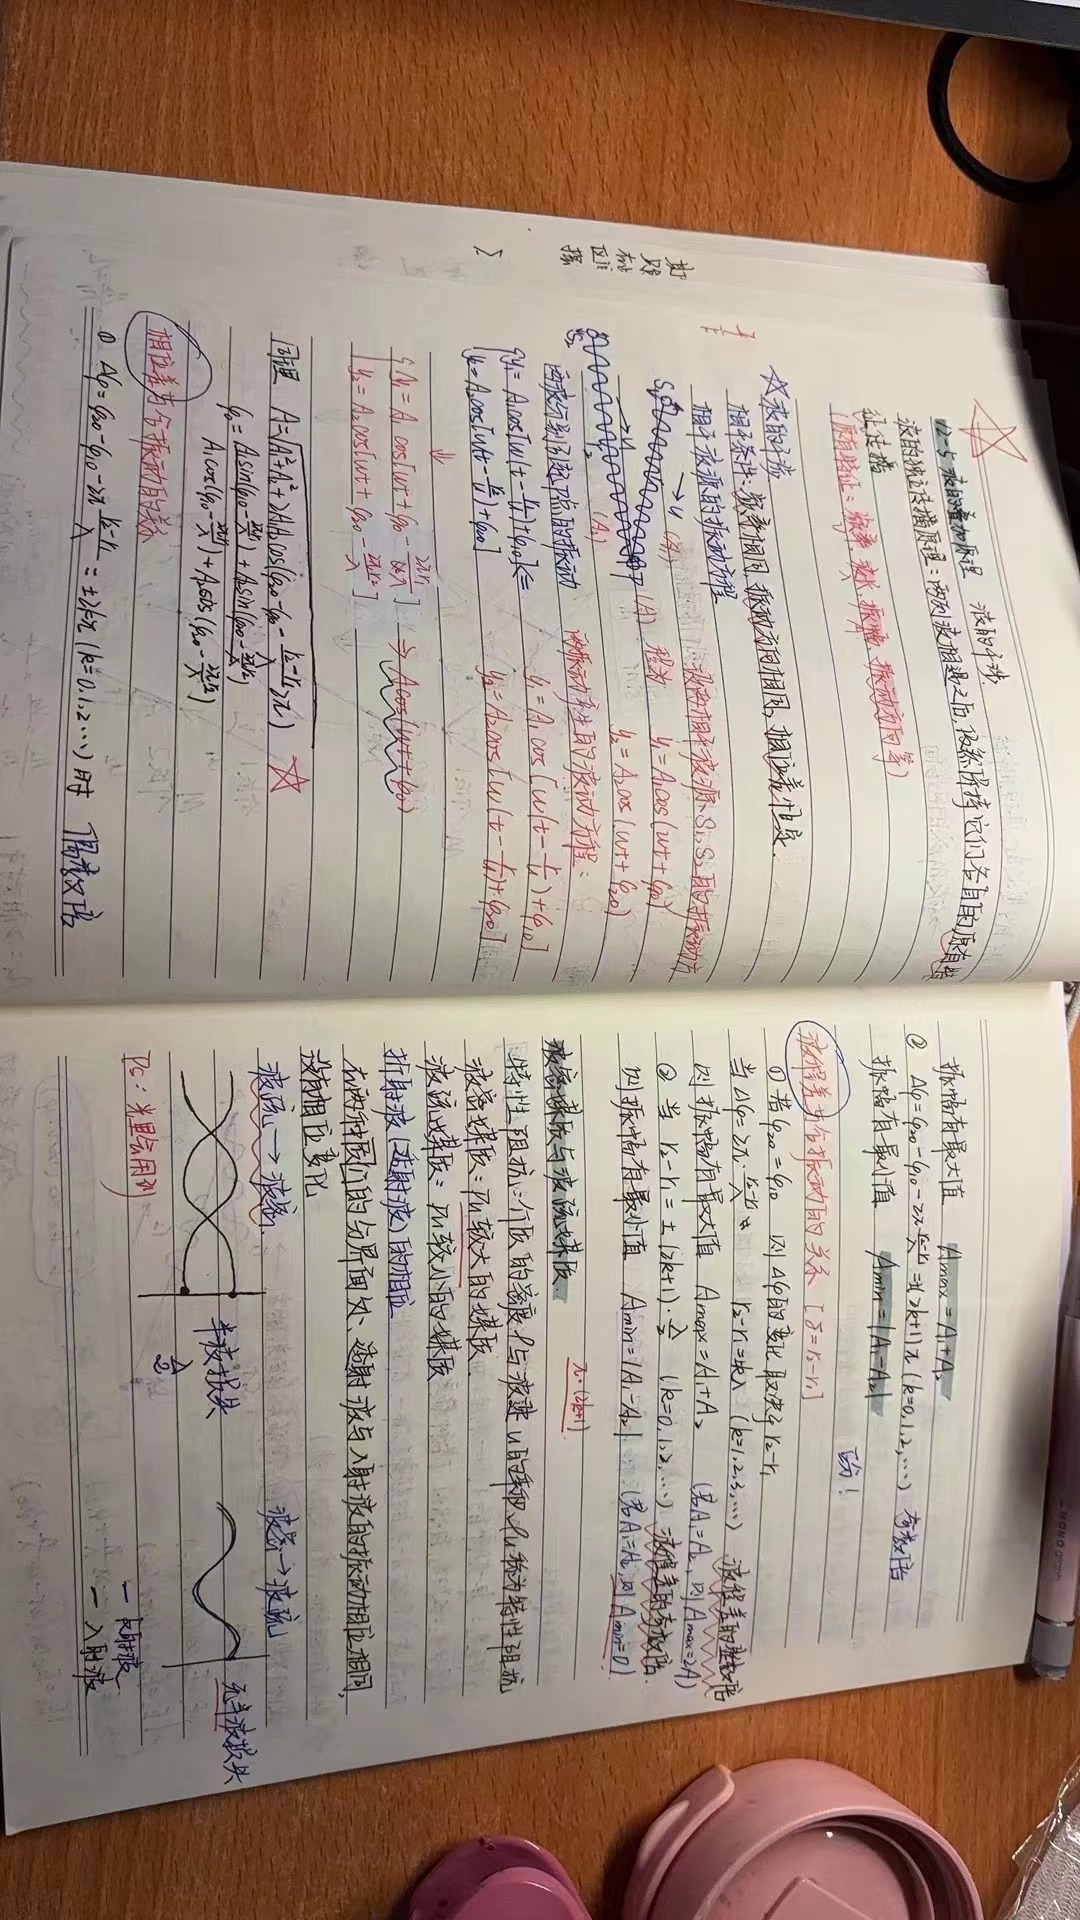 12-5 波的叠加原理 波的干涉
波的独立传播原理：两列波相遇之后，仍然保持它们各自的原有特
征传播
(原有特征：频率、波长、振幅、振动方向等)
☆波的干涉
相干条件：频率相同，振动方向相同，相位差恒定.
相干波源的振动方程
设两相干波源S₁、S₂的振动方
程为 y₁=A₁cos(ωt+φ₁₀)
y₂=A₂cos(ωt+φ₂₀)
S₁ →u (A₁)
P (A)
→u
S₂ r₂ (A₂)
两波分别引起P点的振动
{y₁=A₁cos[ω(t-r₁/u)+φ₁₀] ⇐
{y₂=A₂cos[ω(t-r₂/u)+φ₂₀]
两振动产生的波动方程：
y₁=A₁cos[ω(t-r/u)+φ₁₀]
y₂=A₂cos[ω(t-r/u)+φ₂₀]
⇓
{y₁=A₁cos[ωt+φ₁₀-2πr₁/λ] ⇒ Acos(ωt+φ₀)
{y₂=A₂cos[ωt+φ₂₀-2πr₂/λ]
同理 A=√(A₁²+A₂²+2A₁A₂cos(φ₂₀-φ₁₀-(r₂-r₁)/λ 2π)) ☆
φ₀=(A₁sin(φ₁₀-2πr₁/λ)+A₂sin(φ₂₀-2πr₂/λ))/(A₁cos(φ₁₀-2πr₁/λ)+A₂cos(φ₂₀-2πr₂/λ))
相位差与合振动的关系
① Δφ=φ₂₀-φ₁₀-2π(r₂-r₁)/λ=±2kπ(k=0,1,2…)时 偶数倍
振幅有最大值 Amax=A₁+A₂
② Δφ=φ₂₀-φ₁₀-2π(r₂-r₁)/λ=±(2k+1)π(k=0,1,2,…) 奇数倍
振幅有最小值 Amin=|A₁-A₂|
区分！
波程差与合振动的关系 [δ=r₂-r₁]
① 若φ₂₀=φ₁₀ 则Δφ的变化取决于r₂-r₁
当Δφ=2π·(r₂-r₁)/λ r₂-r₁=±kλ (k=1,2,3,…) 波程差的整数倍
则振幅有最大值 Amax=A₁+A₂ (若A₁=A₂,则Amax=2A)
② 当 r₂-r₁=±(2k+1)·λ/2 (k=0,1,2,…) 波程差的奇数倍.
则振幅有最小值 Amin=|A₁-A₂| (若A₁=A₂,则Amin=0)
π·(2k+1)
波密媒质与波疏媒质.
特性阻抗：介质的密度ρ与波速u的乘积ρu称为特性阻抗
波密媒质：ρu较大的媒质.
波疏媒质：ρu较小的媒质
折射波(透射波)的相位
在两种的分界面处、透射波与入射波的振动相位相同,
没有相位变化
波疏→波密. 波密→波疏
半波损失 无半波损失
λ/2
PS：光里会用到
— 反射波
— 入射波